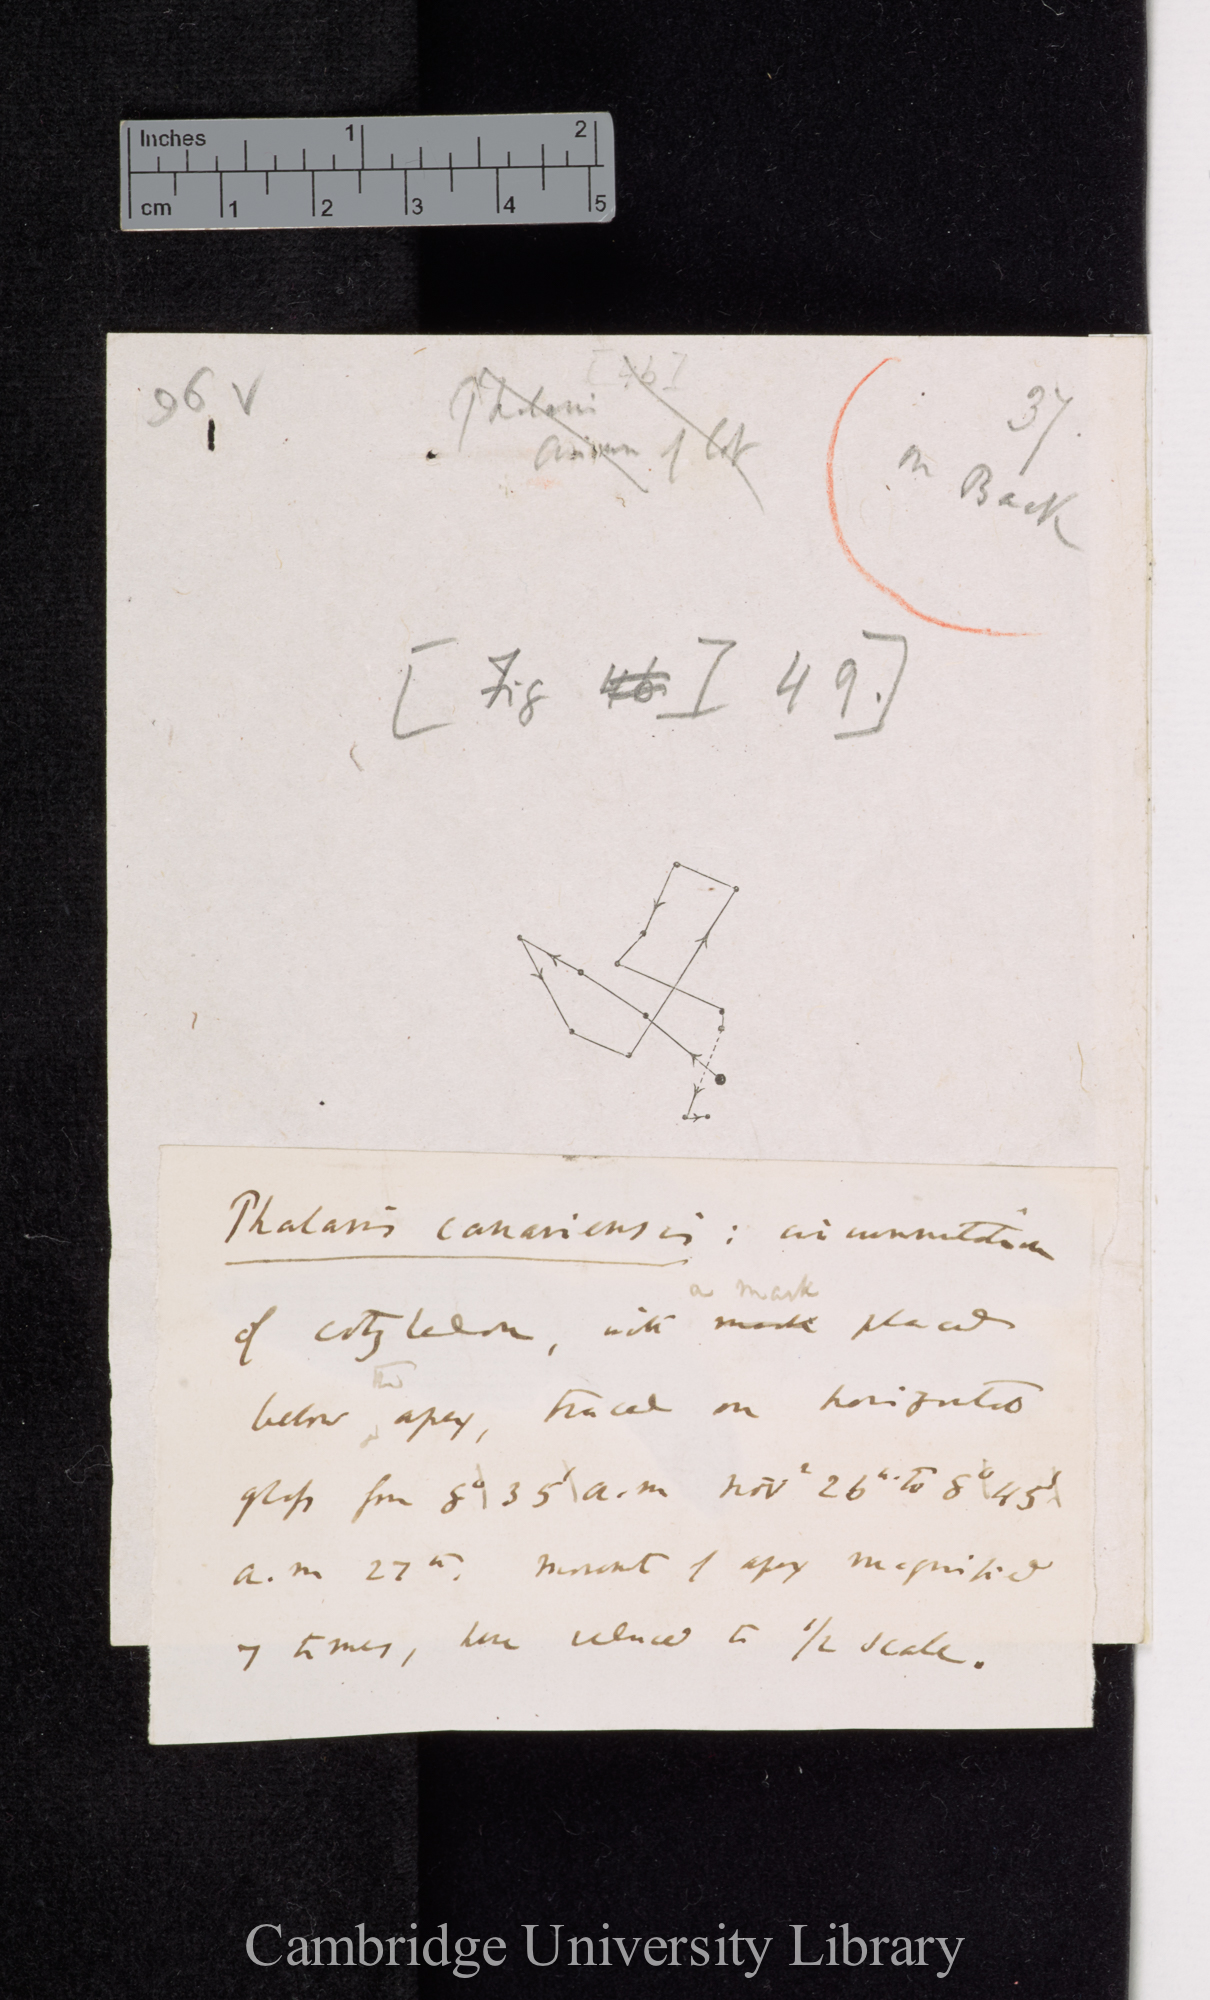 Inches 1 2
cm 1 2 3 4 5
96 v
[46]
Phalaris
circum of Cot
37.
on Back
[Fig 46] 49.]
Phalaris canariensis: circumnutation
a mark
of cotyledon, with mark placed
the
below apex, traced on horizontal
glass from 8° 35' a.m Novr 26th to 8° 45'
a.m 27th. Movemt of apex magnified
7 times, here reduced to 1/2 scale.
Cambridge University Library